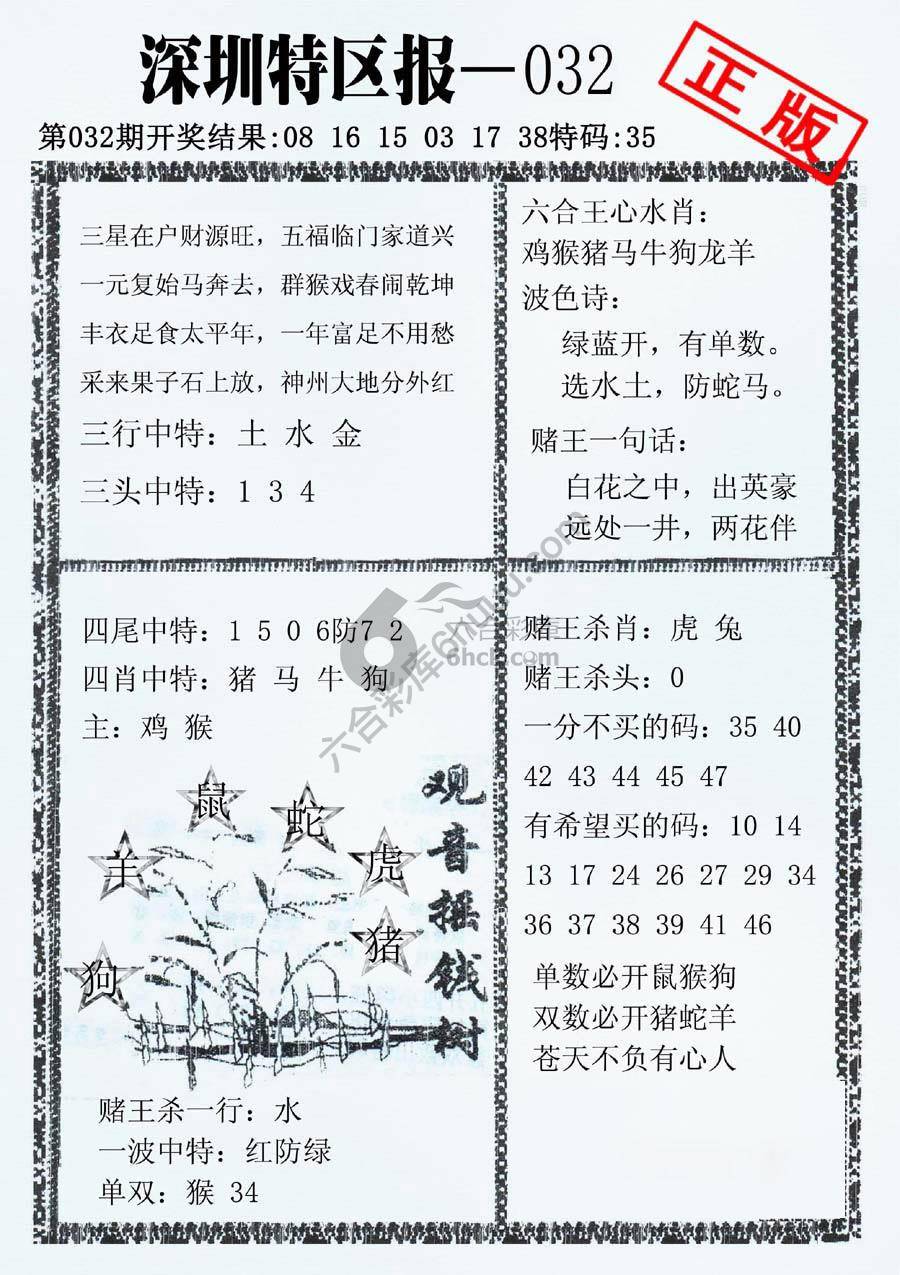 深圳特区报—032
正版
第032期开奖结果:08 16 15 03 17 38特码:35
三星在户财源旺，五福临门家道兴
一元复始马奔去，群猴戏春闹乾坤
丰衣足食太平年，一年富足不用愁
采来果子石上放，神州大地分外红
三行中特：土 水 金
三头中特：1 3 4
六合王心水肖：
鸡猴猪马牛狗龙羊
波色诗：
绿蓝开，有单数。
选水土，防蛇马。
赌王一句话：
白花之中，出英豪
远处一井，两花伴
四尾中特：1 5 0 6防7 2
四肖中特：猪 马 牛 狗
主：鸡 猴
鼠
蛇
羊
虎
猪
狗
观音摇钱树
赌王杀一行：水
一波中特：红防绿
单双：猴 34
赌王杀肖：虎 兔
赌王杀头：0
一分不买的码：35 40
42 43 44 45 47
有希望买的码：10 14
13 17 24 26 27 29 34
36 37 38 39 41 46
单数必开鼠猴狗
双数必开猪蛇羊
苍天不负有心人
六合彩库6htutu.com